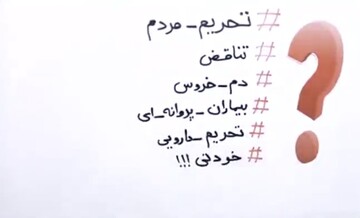 #تحریم_مردم
#تناقض
#دم_خروس
#بیماران_پروانه_ای
#تحریم_دارویی
#خودتی !!!